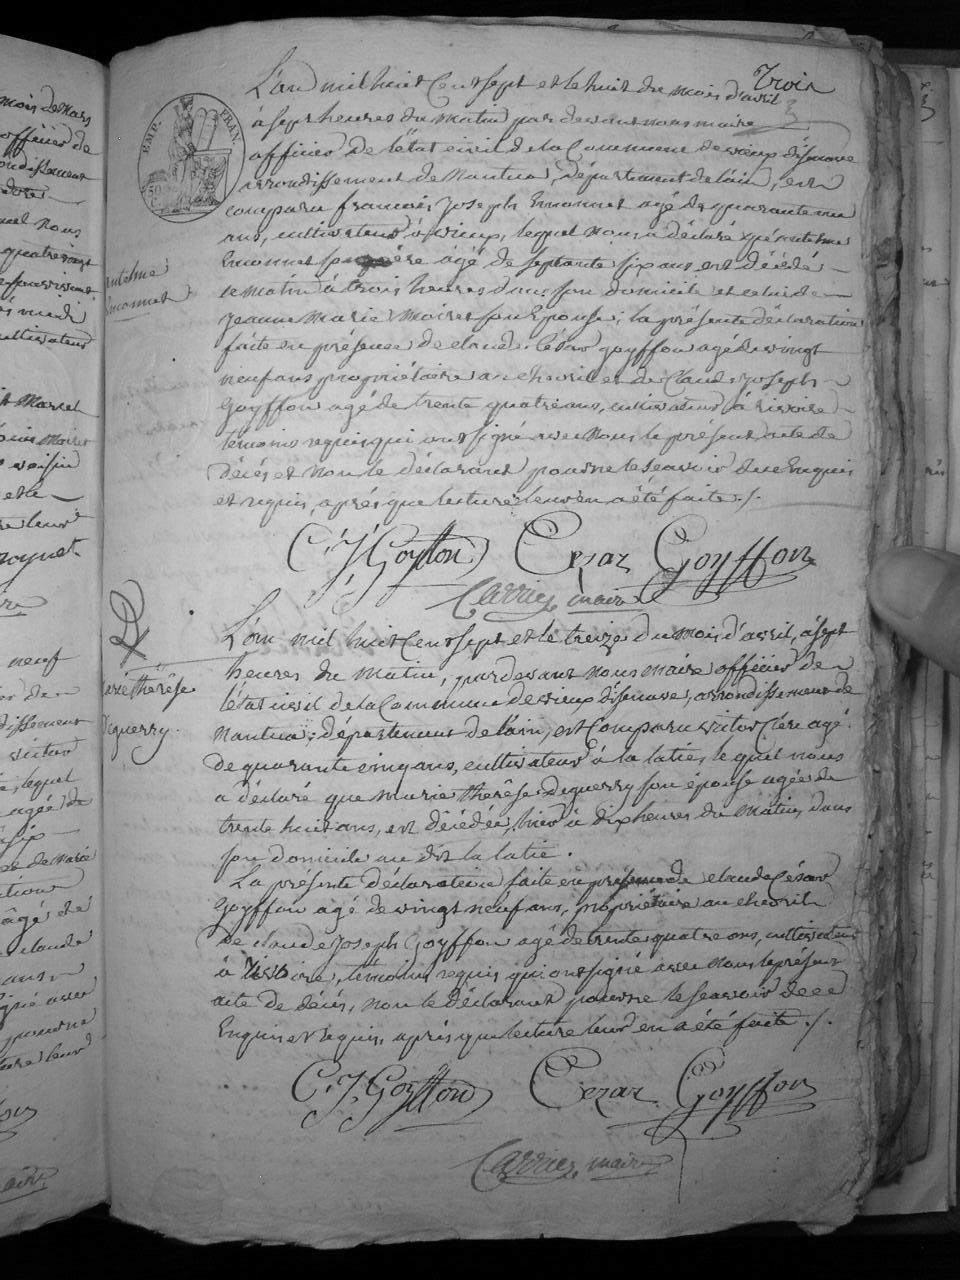 Trois
3
L'an mil huit cent sept et le huit du mois d'avril
à sept heures du matin par devant nous maire
officier de l'état civil de la Commune de vieux d'isenave
arrondissement de Nantua, département de l'ain, est
comparu françois Joseph Emonnet agé de quarante un
ans, cultivateur à vieux, lequel nous a déclaré que antelme
Emonnet son père âgé de septante six ans est décédé
ce matin à trois heures dans son domicile et celui de
jeanne Marie Moiret son Epouse; la présente déclaration
faite en présence de claude César goyffon agé de vingt
neuf ans propriétaire au chevril et de Claude Joseph
Goyffon agé de trente quatre ans, cultivateur à rivoire
témoins requis qui ont signé avec nous le présent acte de
décès et non le déclarant pour ne le sçavoir de ce Enquis
et requis, après que lecture leur en a été faite ./.
antelme
Emonnet
C, J, Goyffon Cezar Goyffon
Carrier, maire
L'an mil huit Cent sept et le treize du mois d'avril, à sept
heures du matin, par devant nous maire officier de
l'état civil de la Commune de vieux d'isenave, arrondissement de
Nantua; département de l'ain, est Comparu victor Cère agé
de quarante cinq ans, cultivateur à la latie, le quel nous
a déclaré que marie thérèse Deguerry son épouse agée de
trente huit ans, est décédée, hier à dix heures du matin, dans
son domicile au dit la latie.
La présente déclaration faite en présence de claude César
Goyffon agé de vingt neuf ans, propriétaire au chevril
de claude Joseph Goyffon agé de trente quatre ans, cultivateur
à rivoire, témoins requis, qui ont signé avec nous le présent
acte de décès, non le déclarant pour ne le sçavoir de ce
Enquis et requis, après que lecture leur en a été faite ./.
marie thérèse
Deguerry.
C, J, Goyffon Cezar Goyffon
Carrier, maire
EMP. FRAN.